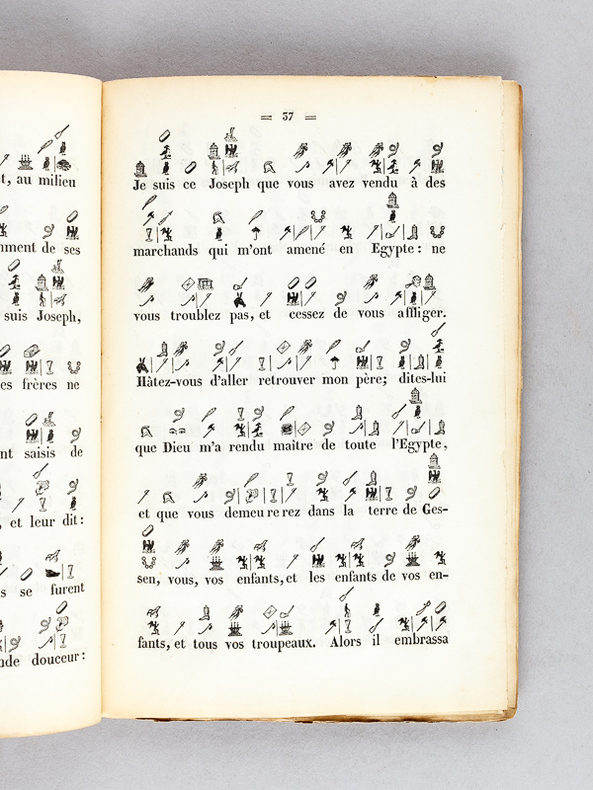 t, au milieu
nment de ses
suis Joseph,
es frères ne
nt saisis de
, et leur dit:
s se furent
nde douceur:
= 37 =
Je suis ce Joseph que vous avez vendu à des
marchands qui m'ont amené en Egypte: ne
vous troublez pas, et cessez de vous affliger.
Hâtez-vous d'aller retrouver mon père; dites-lui
que Dieu m'a rendu maître de toute l'Egypte,
et que vous demeurerez dans la terre de Ges-
sen, vous, vos enfants, et les enfants de vos en-
fants, et tous vos troupeaux. Alors il embrassa